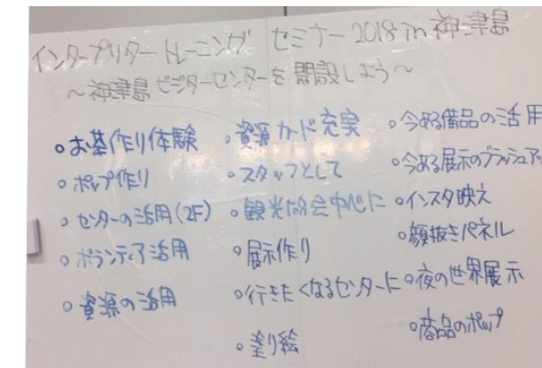 インタープリタートレーニング セミナー2018 in 神津島
～神津島ビジターセンターを開設しよう～
・お茶作り体験
・ポップ作り
・センターの活用(2F)
・ボランティア活用
・資源の活用
・資源カード充実
・スタッフとして
・観光協会中心に
・展示作り
・行きたくなるセンターに
・塗り絵
・今ある備品の活用
・今ある展示のブラッシュアッ
・インスタ映え
・顔抜きパネル
・夜の世界展示
・商品のポップ